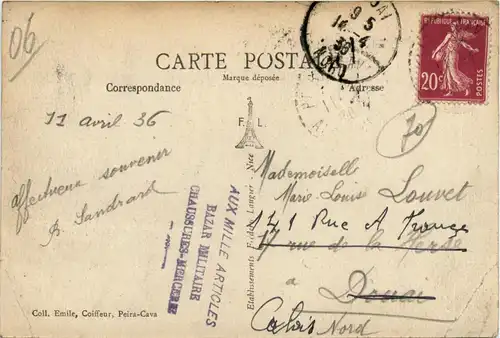 06
CARTE POSTALE
Marque déposée
Correspondance
Adresse
9 5
14-4
36
NORD
RÉPUBLIQUE FRANÇAISE
20c
POSTES
70
11 avril 36
affectueux souvenir
B. Sandrard
F. L.
AUX MILLE ARTICLES
BAZAR MILITAIRE
CHAUSSURES-MERCERIE
Etablissements Frédéric Laugier Nice
Mademoiselle
Marie-Louise Louvet
121 Rue A France
17 rue de la Herse
à Douai
Calais Nord
Coll. Emile, Coiffeur, Peira-Cava